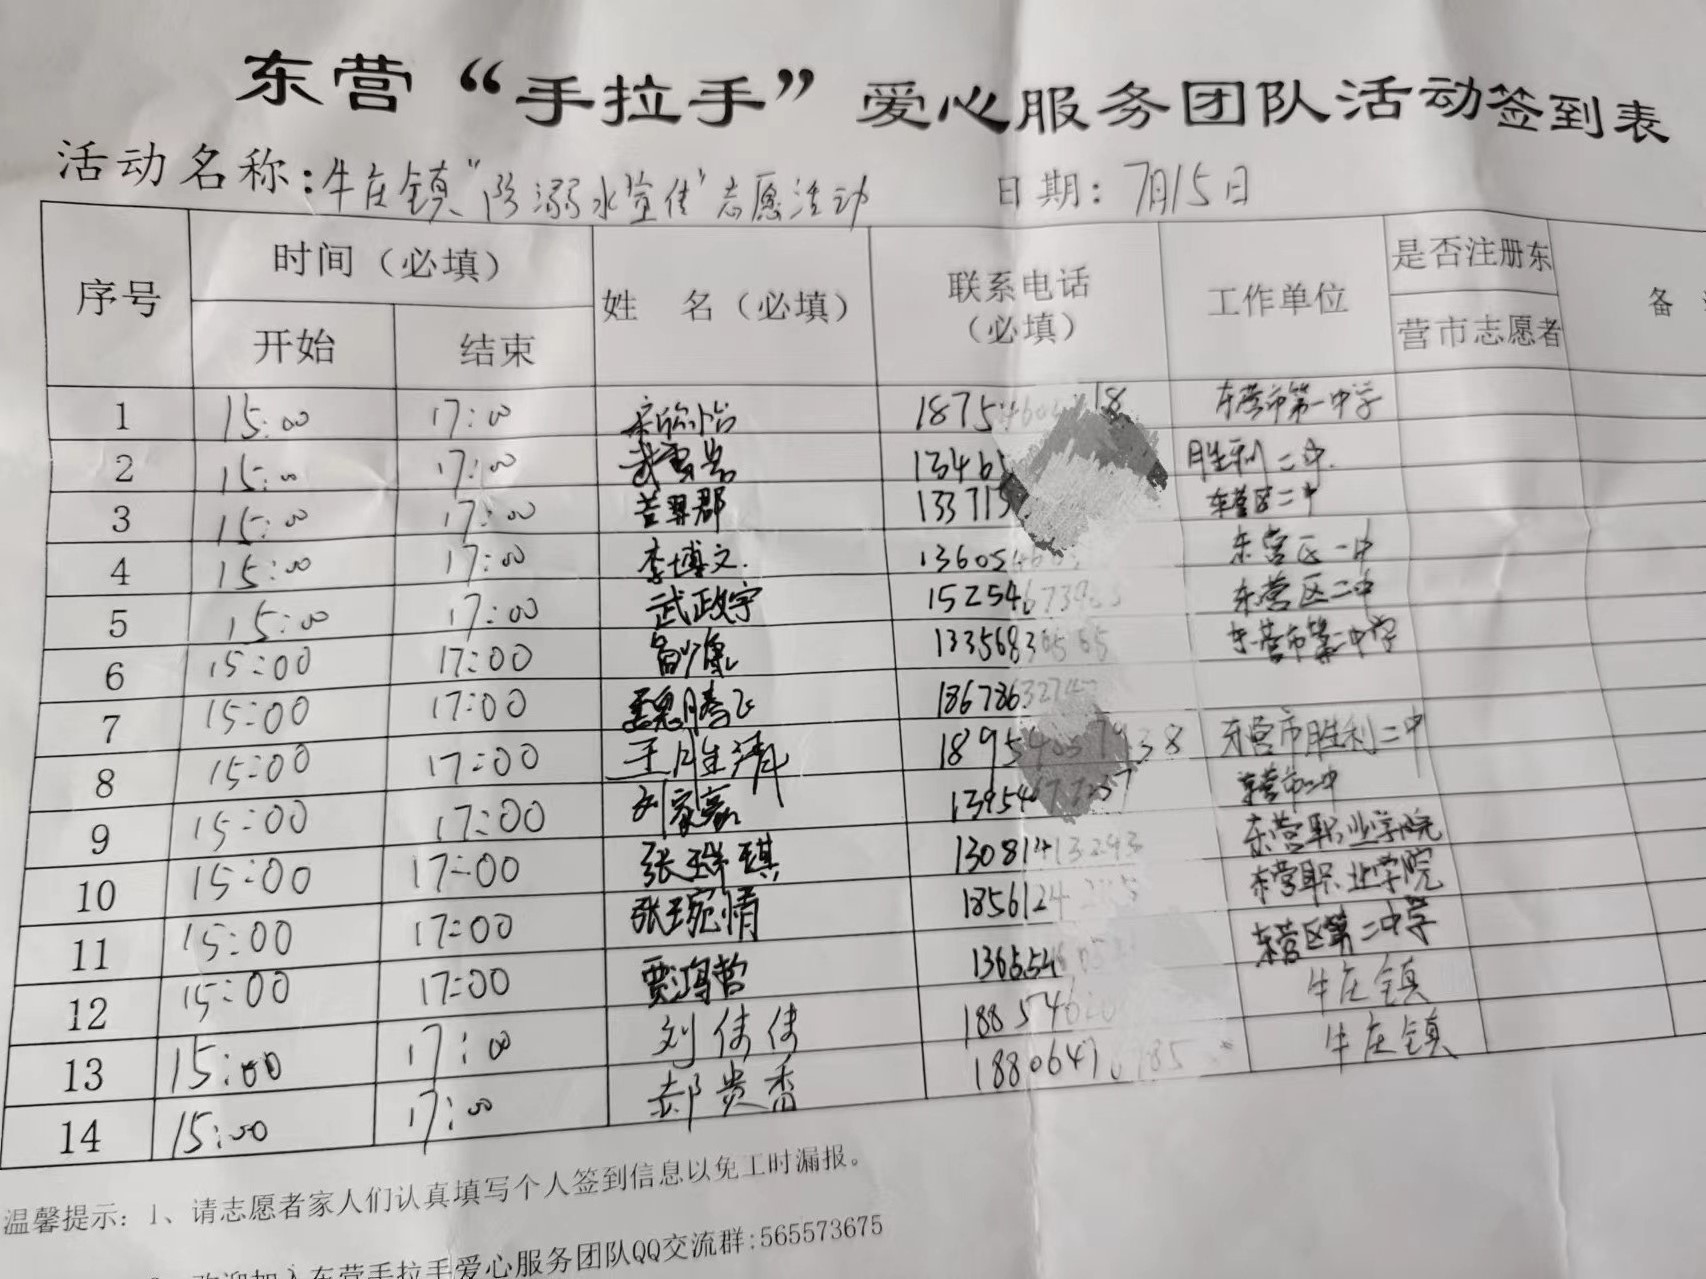 东营“手拉手”爱心服务团队活动签到表
活动名称:牛庄镇“防溺水宣传”志愿活动 日期:7月15日
序号 时间(必填) 姓 名(必填) 联系电话(必填) 工作单位 是否注册东营市志愿者 备
开始 结束
1 15:00 17:00 宋欣怡 1875 18 东营市第一中学
2 15:00 17:00 13465 胜利二中.
3 15:00 17:00 苦翠郡 133715 东营区二中
4 15:00 17:00 李博文. 136054 东营区一中
5 15:00 17:00 武政宇 15254673 东营区二中
6 15:00 17:00 133568365 65 东营市第一中学
7 15:00 17:00 魏腾飞 18678632747
8 15:00 17:00 王胜清 18954 38 东营市胜利二中
9 15:00 17:00 刘家豪 139546 7 东营市二中
10 15:00 17:00 张瑞琪 13081413293 东营职业学院
11 15:00 17:00 张琬情 1856124 东营职业学院
12 15:00 17:00 贾鸿哲 1365546 东营区第二中学
13 15:00 17:00 刘倩倩 188546 牛庄镇
14 15:00 17:00 郝贵香 1880647 785 牛庄镇
温馨提示: 1、请志愿者家人们认真填写个人签到信息以免工时漏报。
欢迎加入东营手拉手爱心服务团队QQ交流群:565573675